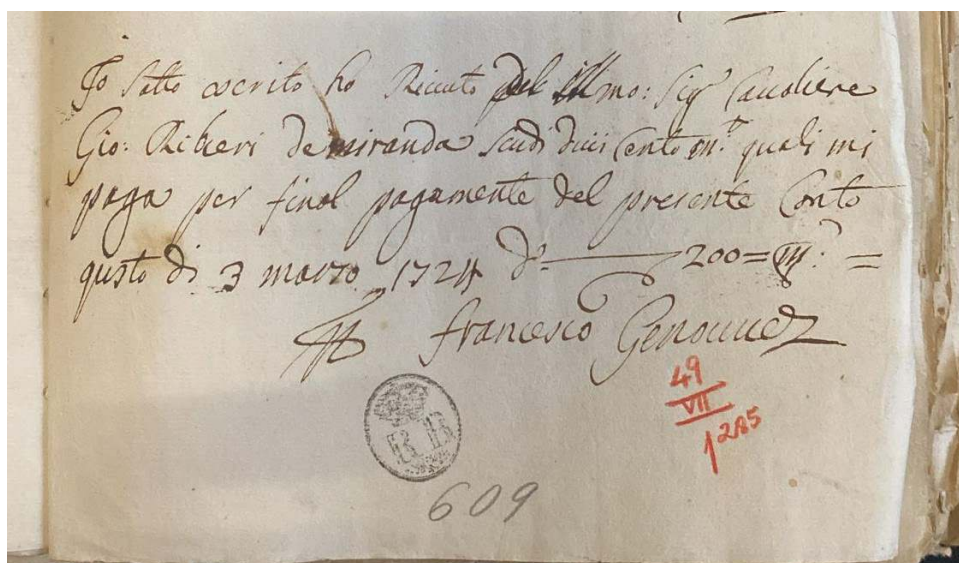 Jo Sotto ascrito ho Riceuto del Illmo: Sigr Caualiere
Gio: Riberi de miranda scudi duicento mta quali mi
paga per final pagamente del presente Conto
questo di 3 marzo 1724 do. 200=mta: =
francesco Genouuez
49
VII
1285
609